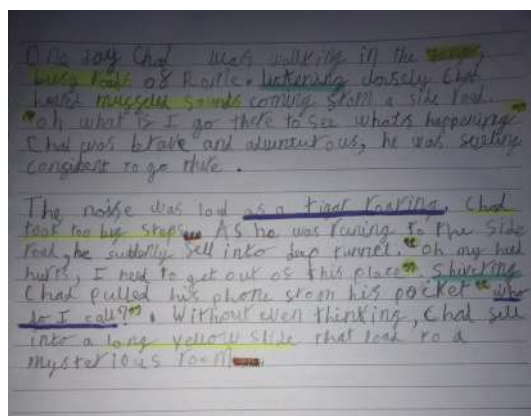 One day Chad was walking in the
busy roads of Rome. Listening closely Chad
heard muffled sounds coming from a side road.
"Oh what if I go there to see whats happening"
Chad was brave and adventurous, he was feeling
confident to go there.
The noise was loud as a tiger roaring. Chad
took too big steps... As he was runing to the side
road, he suddenly fell into deep tunnel. "Oh my head
hurts, I need to get out of this place". Shivering
Chad pulled his phone from his pocket "who
do I call?". Without even thinking, Chad fell
into a long yellow slide that lead to a
mysterious room....